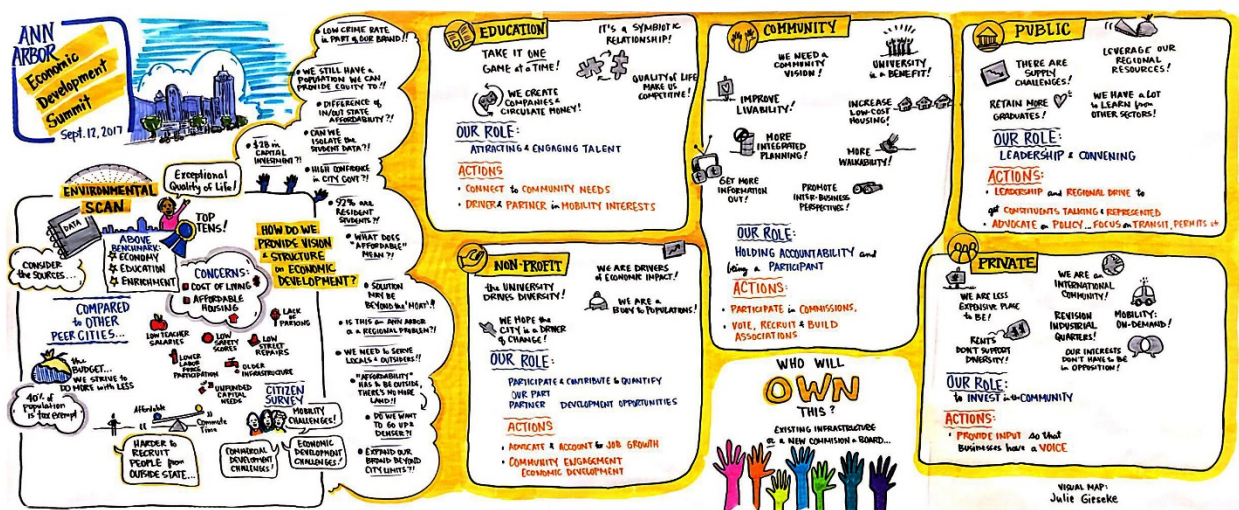 ANN
ARBOR
Economic
Development
Summit
Sept. 12, 2017
ENVIRONMENTAL
SCAN
Exceptional
Quality of Life!
DATA
TOP
TENS!
CONSIDER
the SOURCES...
ABOVE
BENCHMARK:
ECONOMY
EDUCATION
ENRICHMENT
CONCERNS:
COST OF LIVING
AFFORDABLE
HOUSING
COMPARED
to OTHER
PEER CITIES...
LOW TEACHER
SALARIES
LOW
SAFETY
SCORES
LACK
OF
PARKING
LOW
STREET
REPAIRS
LOWER
LABOR
FORCE
PARTICIPATION
OLDER
INFRASTRUCTURE
UNFUNDED
CAPITAL
NEEDS
the
BUDGET...
WE STRIVE to
DO MORE with LESS
40% of
population
is tax exempt
Affordable
Commute
Time
HARDER to
RECRUIT
PEOPLE from
OUTSIDE STATE...
CITIZEN
SURVEY
MOBILITY
CHALLENGES!
COMMERCIAL
DEVELOPMENT
CHALLENGES!
ECONOMIC
DEVELOPMENT
CHALLENGES!
HOW DO WE
PROVIDE VISION
& STRUCTURE
on ECONOMIC
DEVELOPMENT?
• LOW CRIME RATE
is PART of OUR BRAND!!
• WE STILL HAVE a
POPULATION WE CAN
PROVIDE EQUITY TO?!
• DIFFERENCE OF
IN/OUT STATE
AFFORDABILITY?!
• $2B in
CAPITAL
INVESTMENT?!
• CAN WE
ISOLATE the
STUDENT DATA?!
• HIGH CONFIDENCE
in CITY GOVT?!
• 92% ARE
RESIDENT
STUDENTS?!
• WHAT DOES
"AFFORDABLE"
MEAN?!
• SOLUTION
MAY BE
BEYOND the "MOAT"!!
• IS THIS an ANN ARBOR
or a REGIONAL PROBLEM?!
• WE NEED to SERVE
LOCALS & OUTSIDERS!!
• "AFFORDABILITY"
HAS to BE OUTSIDE,
THERE'S NO MORE
LAND!!
• DO WE WANT
TO GO UP &
DENSER?!
• EXPAND OUR
BRAND BEYOND
CITY LIMITS?!
EDUCATION
TAKE IT ONE
GAME at a TIME!
IT'S a SYMBIOTIC
RELATIONSHIP!
WE CREATE
COMPANIES &
CIRCULATE MONEY!
QUALITY of LIFE
MAKE US
COMPETITIVE!
OUR ROLE:
ATTRACTING & ENGAGING TALENT
ACTIONS
• CONNECT to COMMUNITY NEEDS
• DRIVER & PARTNER in MOBILITY INTERESTS
NON-PROFIT
the UNIVERSITY
DRIVES DIVERSITY!
WE ARE DRIVERS
of ECONOMIC IMPACT!
WE ARE a
BUOY to POPULATIONS!
WE HOPE the
CITY is a DRIVER
of CHANGE!
OUR ROLE:
PARTICIPATE & CONTRIBUTE to QUANTIFY
OUR PART
PARTNER DEVELOPMENT OPPORTUNITIES
ACTIONS
• ADVOCATE & ACCOUNT for JOB GROWTH
• COMMUNITY ENGAGEMENT
ECONOMIC DEVELOPMENT
COMMUNITY
WE NEED a
COMMUNITY
VISION!
UNIVERSITY
is a BENEFIT!
IMPROVE
LIVABILITY!
INCREASE
LOW-COST
HOUSING!
MORE
INTEGRATED
PLANNING!
MORE
WALKABILITY!
GET MORE
INFORMATION
OUT!
PROMOTE
INTER-BUSINESS
PERSPECTIVES!
OUR ROLE:
HOLDING ACCOUNTABILITY and
being a PARTICIPANT
ACTIONS:
• PARTICIPATE in COMMISSIONS,
• VOTE, RECRUIT & BUILD
ASSOCIATIONS
WHO WILL
OWN
THIS?
EXISTING INFRASTRUCTURE
or a NEW COMMISION or BOARD...
PUBLIC
THERE ARE
SUPPLY
CHALLENGES!
LEVERAGE OUR
REGIONAL
RESOURCES!
RETAIN MORE
GRADUATES!
WE HAVE A LOT
to LEARN from
OTHER SECTORS!
OUR ROLE:
LEADERSHIP & CONVENING
ACTIONS:
• LEADERSHIP and REGIONAL DRIVE to
get CONSTITUENTS TALKING & REPRESENTED
• ADVOCATE on POLICY... FOCUS on TRANSIT, PERMITS
PRIVATE
WE ARE LESS
EXPENSIVE PLACE
to BE!
WE ARE an
INTERNATIONAL
COMMUNITY!
RENTS
DON'T SUPPORT
DIVERSITY!
REVISION
INDUSTRIAL
QUARTERS!
MOBILITY:
ON-DEMAND!
OUR INTERESTS
DON'T HAVE to BE
in OPPOSITION!
OUR ROLE:
to INVEST in the COMMUNITY
ACTIONS:
• PROVIDE INPUT so that
BUSINESSES have a VOICE
VISUAL MAP:
Julie Gieseke